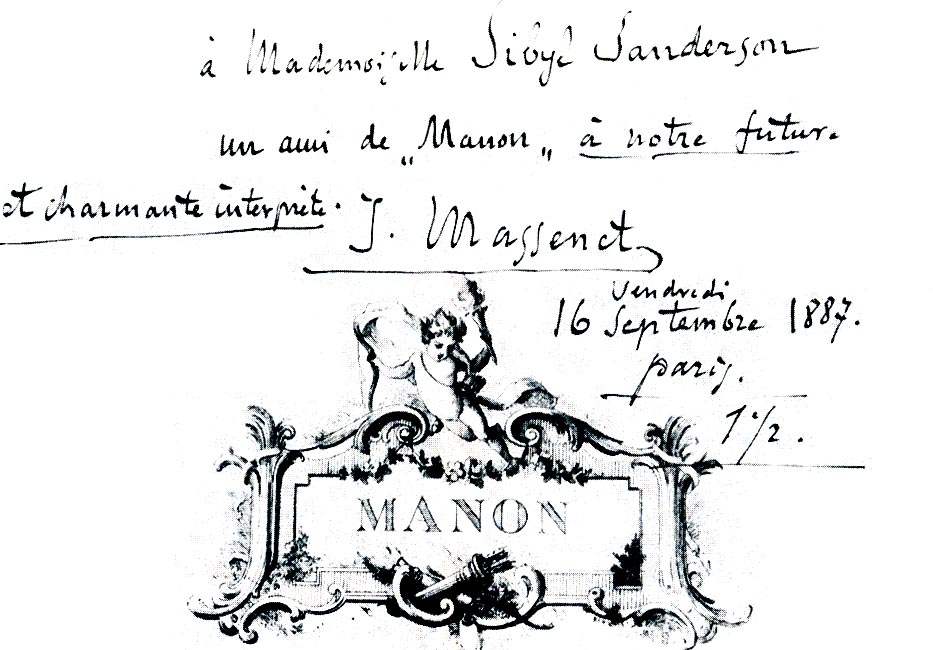 à Mademoiselle Sibyl Sanderson
un ami de „Manon„ à notre future
et charmante interprète.
J. Massenet
Vendredi
16 Septembre 1887.
paris.
1 ½.
MANON